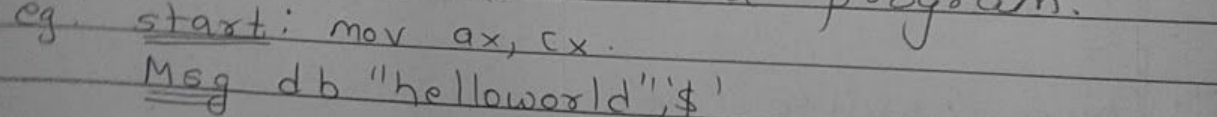 program.
eg. start: mov ax, cx.
Msg db "helloworld",'$'